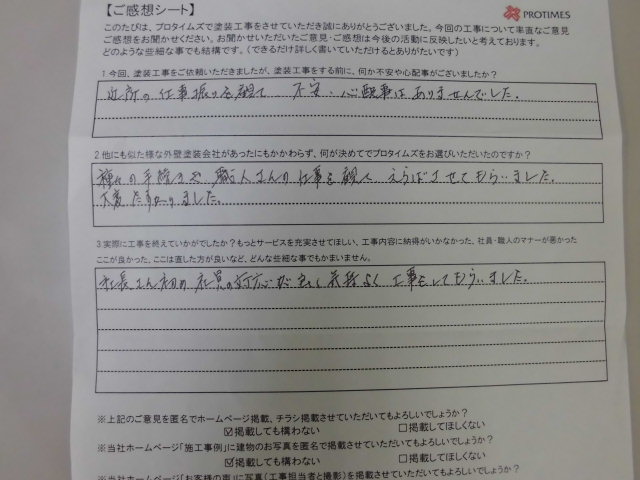 【ご感想シート】
PROTIMES
このたびは、プロタイムズで塗装工事をさせていただき誠にありがとうございました。今回の工事について率直なご意見
ご感想をお聞かせください。お聞かせいただいたご意見・ご感想は今後の活動に反映したいと考えております。
どのような些細な事でも結構です。（できるだけ詳しく書いていただけるとありがたいです）
1.今回、塗装工事をご依頼いただきましたが、塗装工事をする前に、何か不安や心配事がございましたか？
近所の仕事振りを観て 不安、心配事はありませんでした。
2.他にも似た様な外壁塗装会社があったにもかかわらず、何が決めてでプロタイムズをお選びいただいたのですか？
種々の手続きや職人さんの仕事を観て えらばさせてもらいました。
大変たすかりました。
3.実際に工事を終えていかがでしたか？もっとサービスを充実させてほしい、工事内容に納得がいかなかった、社員・職人のマナーが悪かった
ここが良かった、ここは直した方が良いなど、どんな些細な事でもかまいません。
社長さん初め 社員の対応が良く気持よく 工事をしてもらいました。
※上記のご意見を匿名でホームページ掲載、チラシ掲載させていただいてもよろしいでしょうか？
☑掲載しても構わない □掲載してほしくない
※当社ホームページ「施工事例」に建物のお写真を匿名で掲載させていただいてもよろしいでしょうか？
☑掲載しても構わない □掲載してほしくない
※当社ホームページ「お客様の声」に写真（工事担当者と撮影）を掲載させていただいてもよろしいでしょうか？